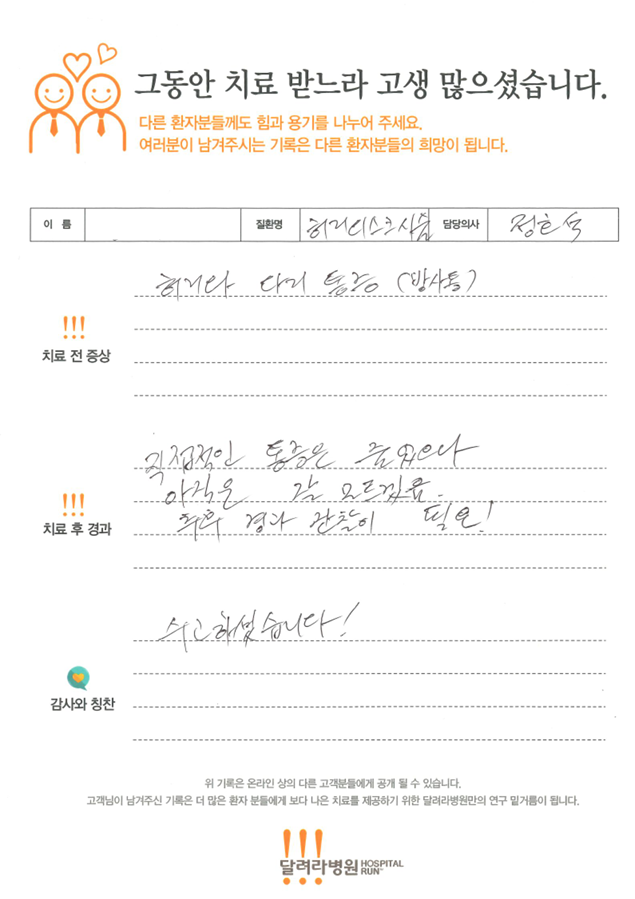 그동안 치료 받느라 고생 많으셨습니다.
다른 환자분들께도 힘과 용기를 나누어 주세요.
여러분이 남겨주시는 기록은 다른 환자분들의 희망이 됩니다.
이 름 질환명 허리디스크시술 담당의사 정호석
허리와 다리 통증 (방사통)
!!!
치료 전 증상
직접적인 통증은 줄었으나
아직은 잘 모르겠음.
!!!
추후 경과 관찰이 필요!
치료 후 경과
수고하셨습니다!
감사와 칭찬
위 기록은 온라인 상의 다른 고객분들에게 공개 될 수 있습니다.
고객님이 남겨주신 기록은 더 많은 환자 분들에게 보다 나은 치료를 제공하기 위한 달려라병원만의 연구 밑거름이 됩니다.
!!!
달려라병원 HOSPITAL RUN